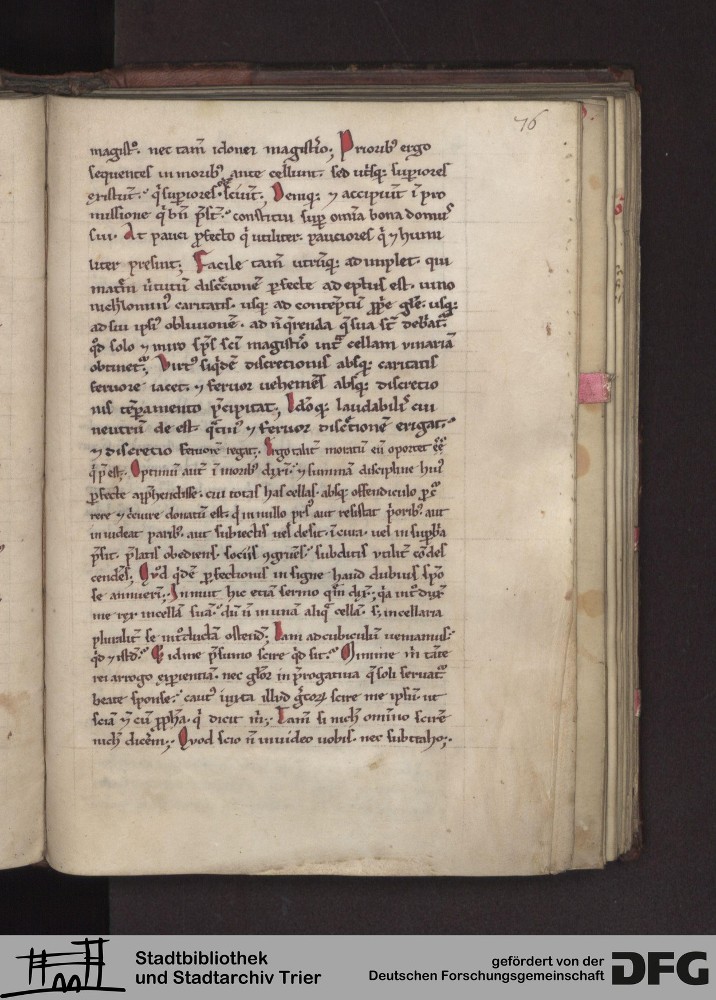 76
magist̄o. nec tam̄ idonei magist̄io; Priorib᷒ ergo
sequentes in morib᷒ ante cellunt. sed ut̄sq; supiores
existūt. q̄ supiores sciunt. Deniq; ⁊ accipiunt ī pro
missione q̄ bn̄ p̄st̄. constitui sup̄ om̄ia bona domus
sui. At pauci p̄fecto q̄ utiliter. pauciores q̄ ⁊ humi
liter presint; Facile tam̄ utrūq; ad inplet. qui
matrē ūtutū discc̄ionē p̄fecte ad eptus est. uino
nichlominus caritatis. usq; ad conteptū p̄p̄e gl̄e. usq;
ad sui ipsi᷒ obliuionē. ad n̄ q̄renda q̄ sua st̄ debr̄iat᷒.
qd̄ solo ⁊ miro sp̄s sc̄i magist̄io int᷒ cellam uinariā
obtinet᷒; Virt᷒ siq̄dē discretionis absq; caritatis
feruore iacet. ⁊ feruor uehemēs absq; discretio
nis tēpamento p̄cipitat; Idōq; laudabilis cui
neutrū de est. q̄tin᷒ ⁊ feruor discc̄tionē erigat.
⁊ discretio feruorē regat; Ergo talit̄ moratū eū oportet ēē
q̄ p̄est. Optimū aut̄ ī morib᷒ dixi. ⁊ summā discipline hui᷒
p̄fecte app̄hendisse. cui totas has cellas. absq; offendiculo p̄c᷒
rere ⁊ cc̄uire donatū est. q̄ in nullo prs᷒ aut resistat p̄orib᷒. aut
inuideat parib᷒. aut subiectis uel desit. ī cura. uel in supbia
p̄sit. p̄latis obediens. sociis ꝯgruēs. subditis utilit̄ cōdes
cendēs; Qd̄ q̄dē p̄fectionis in signe haud dubius sp̄o
se annuerī; Innuit hic etiā sermo q̄m dix̄; q̄a int᷒dux̄
me rex in cellā suā. dū n̄ in unā aliq̄ cellā. s; in cellaria
pluralit̄ se int᷒ductā ostend̄; Iam ad cubiculū ueniamus.
qd̄ ⁊ istd̄. Et id me p̄sumo scire qd̄ sit. Minime m̄ tāte
rei arrogo expientiā. nec glor̄ in p̄rogatiua q̄ soli seruat᷒
beate sponse. caut᷒ iuxta illud grecorū scire me ipsū. ut
sciā ⁊ cū pp̄ha. q̄ dicit m̄; Tam̄ si nichil omīno scirē
nichil dicerē; Quod scio n̄ inuideo uobis. nec subtraho;
Stadtbibliothek
und Stadtarchiv Trier
gefördert von der
Deutschen Forschungsgemeinschaft DFG